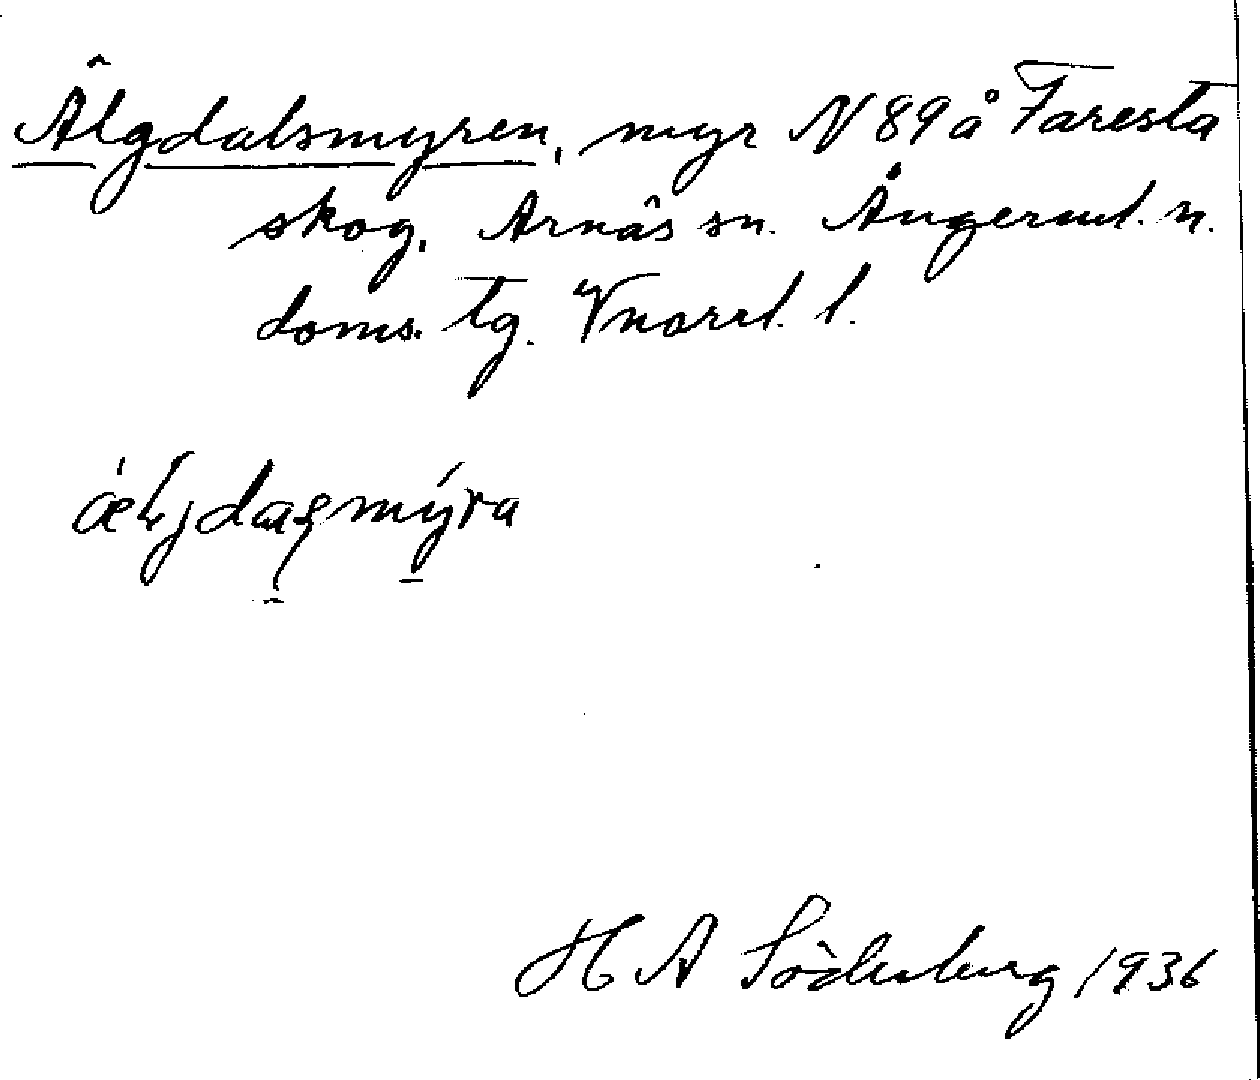 Älgdalsmyren, myr N 89 å Faresta
skog, Arnäs sn. Ångerml. n.
doms. tg. Vnorrl. l.
H A Söderberg 1936